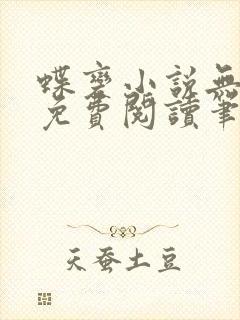 蝶变小説無
免費閱讀筆
天蚕土豆